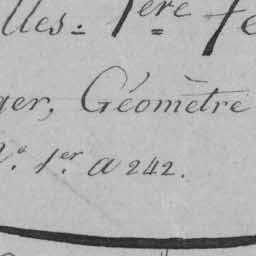 lles. 1ère fe
ger, Géomètre
N.º 1.er a 242.